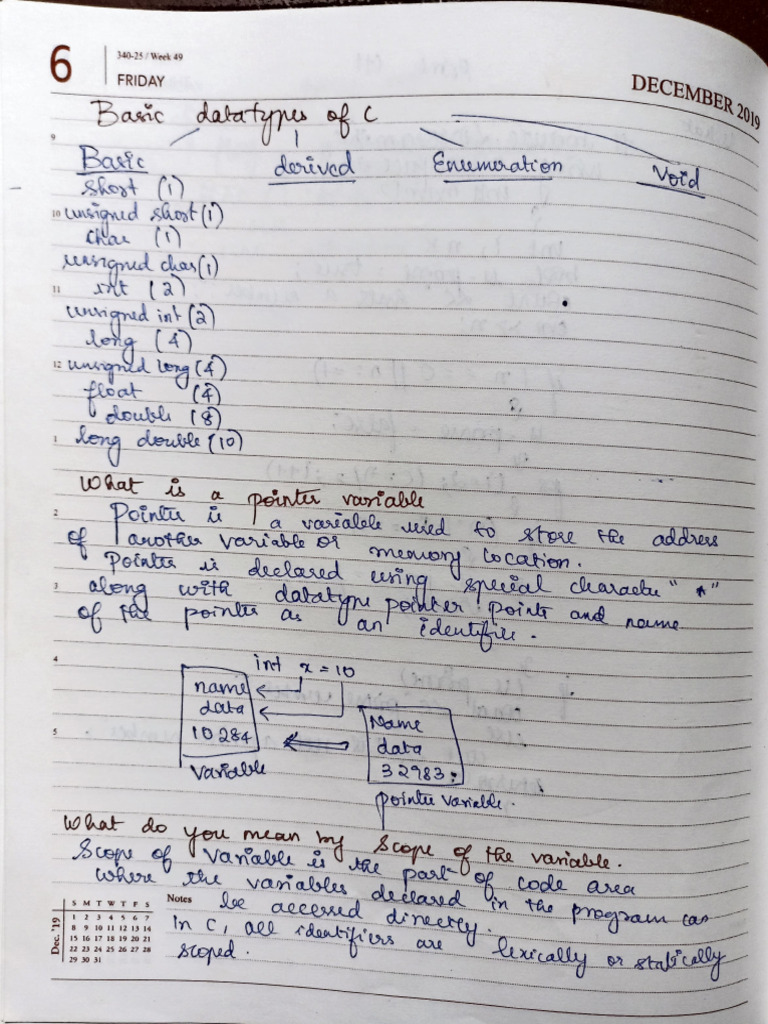 6
340-25 / Week 49
FRIDAY
DECEMBER 2019
Basic datatypes of C
9
Basic derived Enumeration Void
short (1)
10 unsigned short (1)
char (1)
unsigned char (1)
11 int (2)
unsigned int (2)
long (4)
12 unsigned long (4)
float (4)
double (8)
1 long double (10)
What is a pointer variable
2 Pointer is a variable used to store the address
of another variable or memory location.
Pointer is declared using special character "*"
3 along with datatype pointer points and name
of the pointer as an identifier.
4 int x = 10
name
data
10284
variable
5
Name
data
32983
pointer variable.
What do you mean by scope of the variable.
Scope of variable is the part of code area
where the variables declared in the program can
be accessed directly.
In C, all identifiers are lexically or statically
scoped.
Notes
Dec. '19
S M T W T F S
1 2 3 4 5 6 7
8 9 10 11 12 13 14
15 16 17 18 19 20 21
22 23 24 25 26 27 28
29 30 31